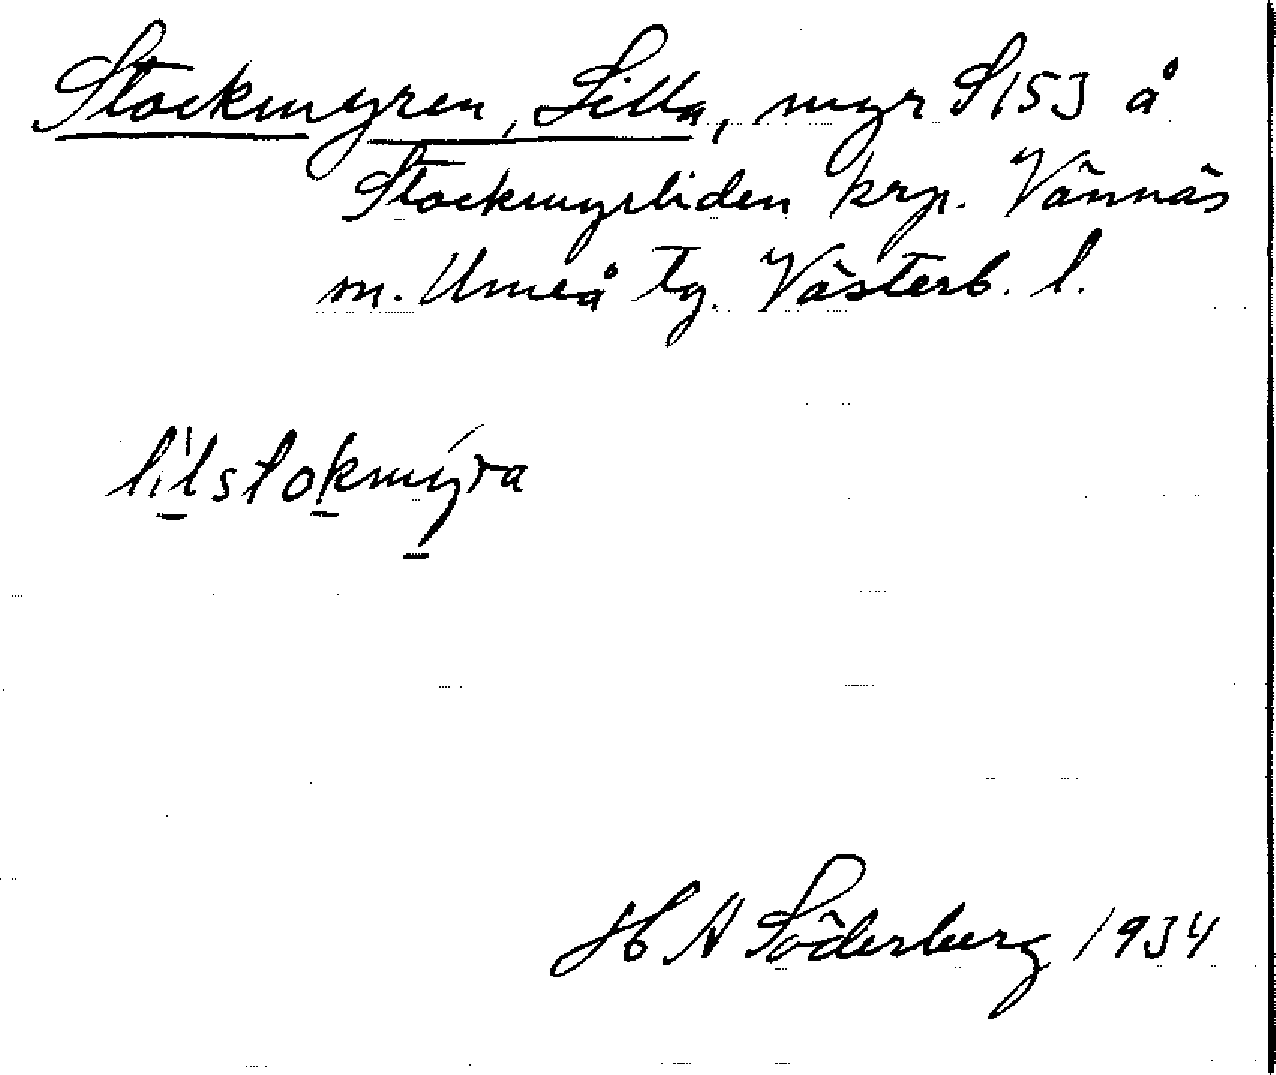 Stockmyren, Lilla, myr S153 å
Stockmyrliden krp. Vännäs
m. Umeå tg. Västerb. l.
lìlstokmýra
H A Söderberg 1934